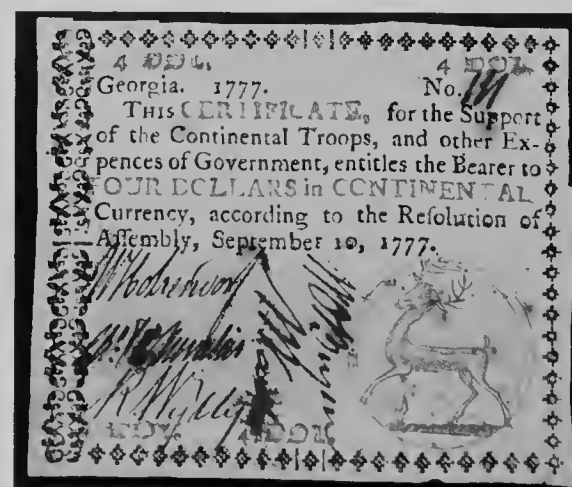 4 DOL. 4 DOL.
Georgia. 1777. No.
THIS CERTIFICATE, for the Support
of the Continental Troops, and other Ex-
pences of Government, entitles the Bearer to
FOUR DOLLARS in CONTINENTAL
Currency, according to the Reſolution of
Aſſembly, September 10, 1777.
R Wylly
4 DOL. 4 DOL.